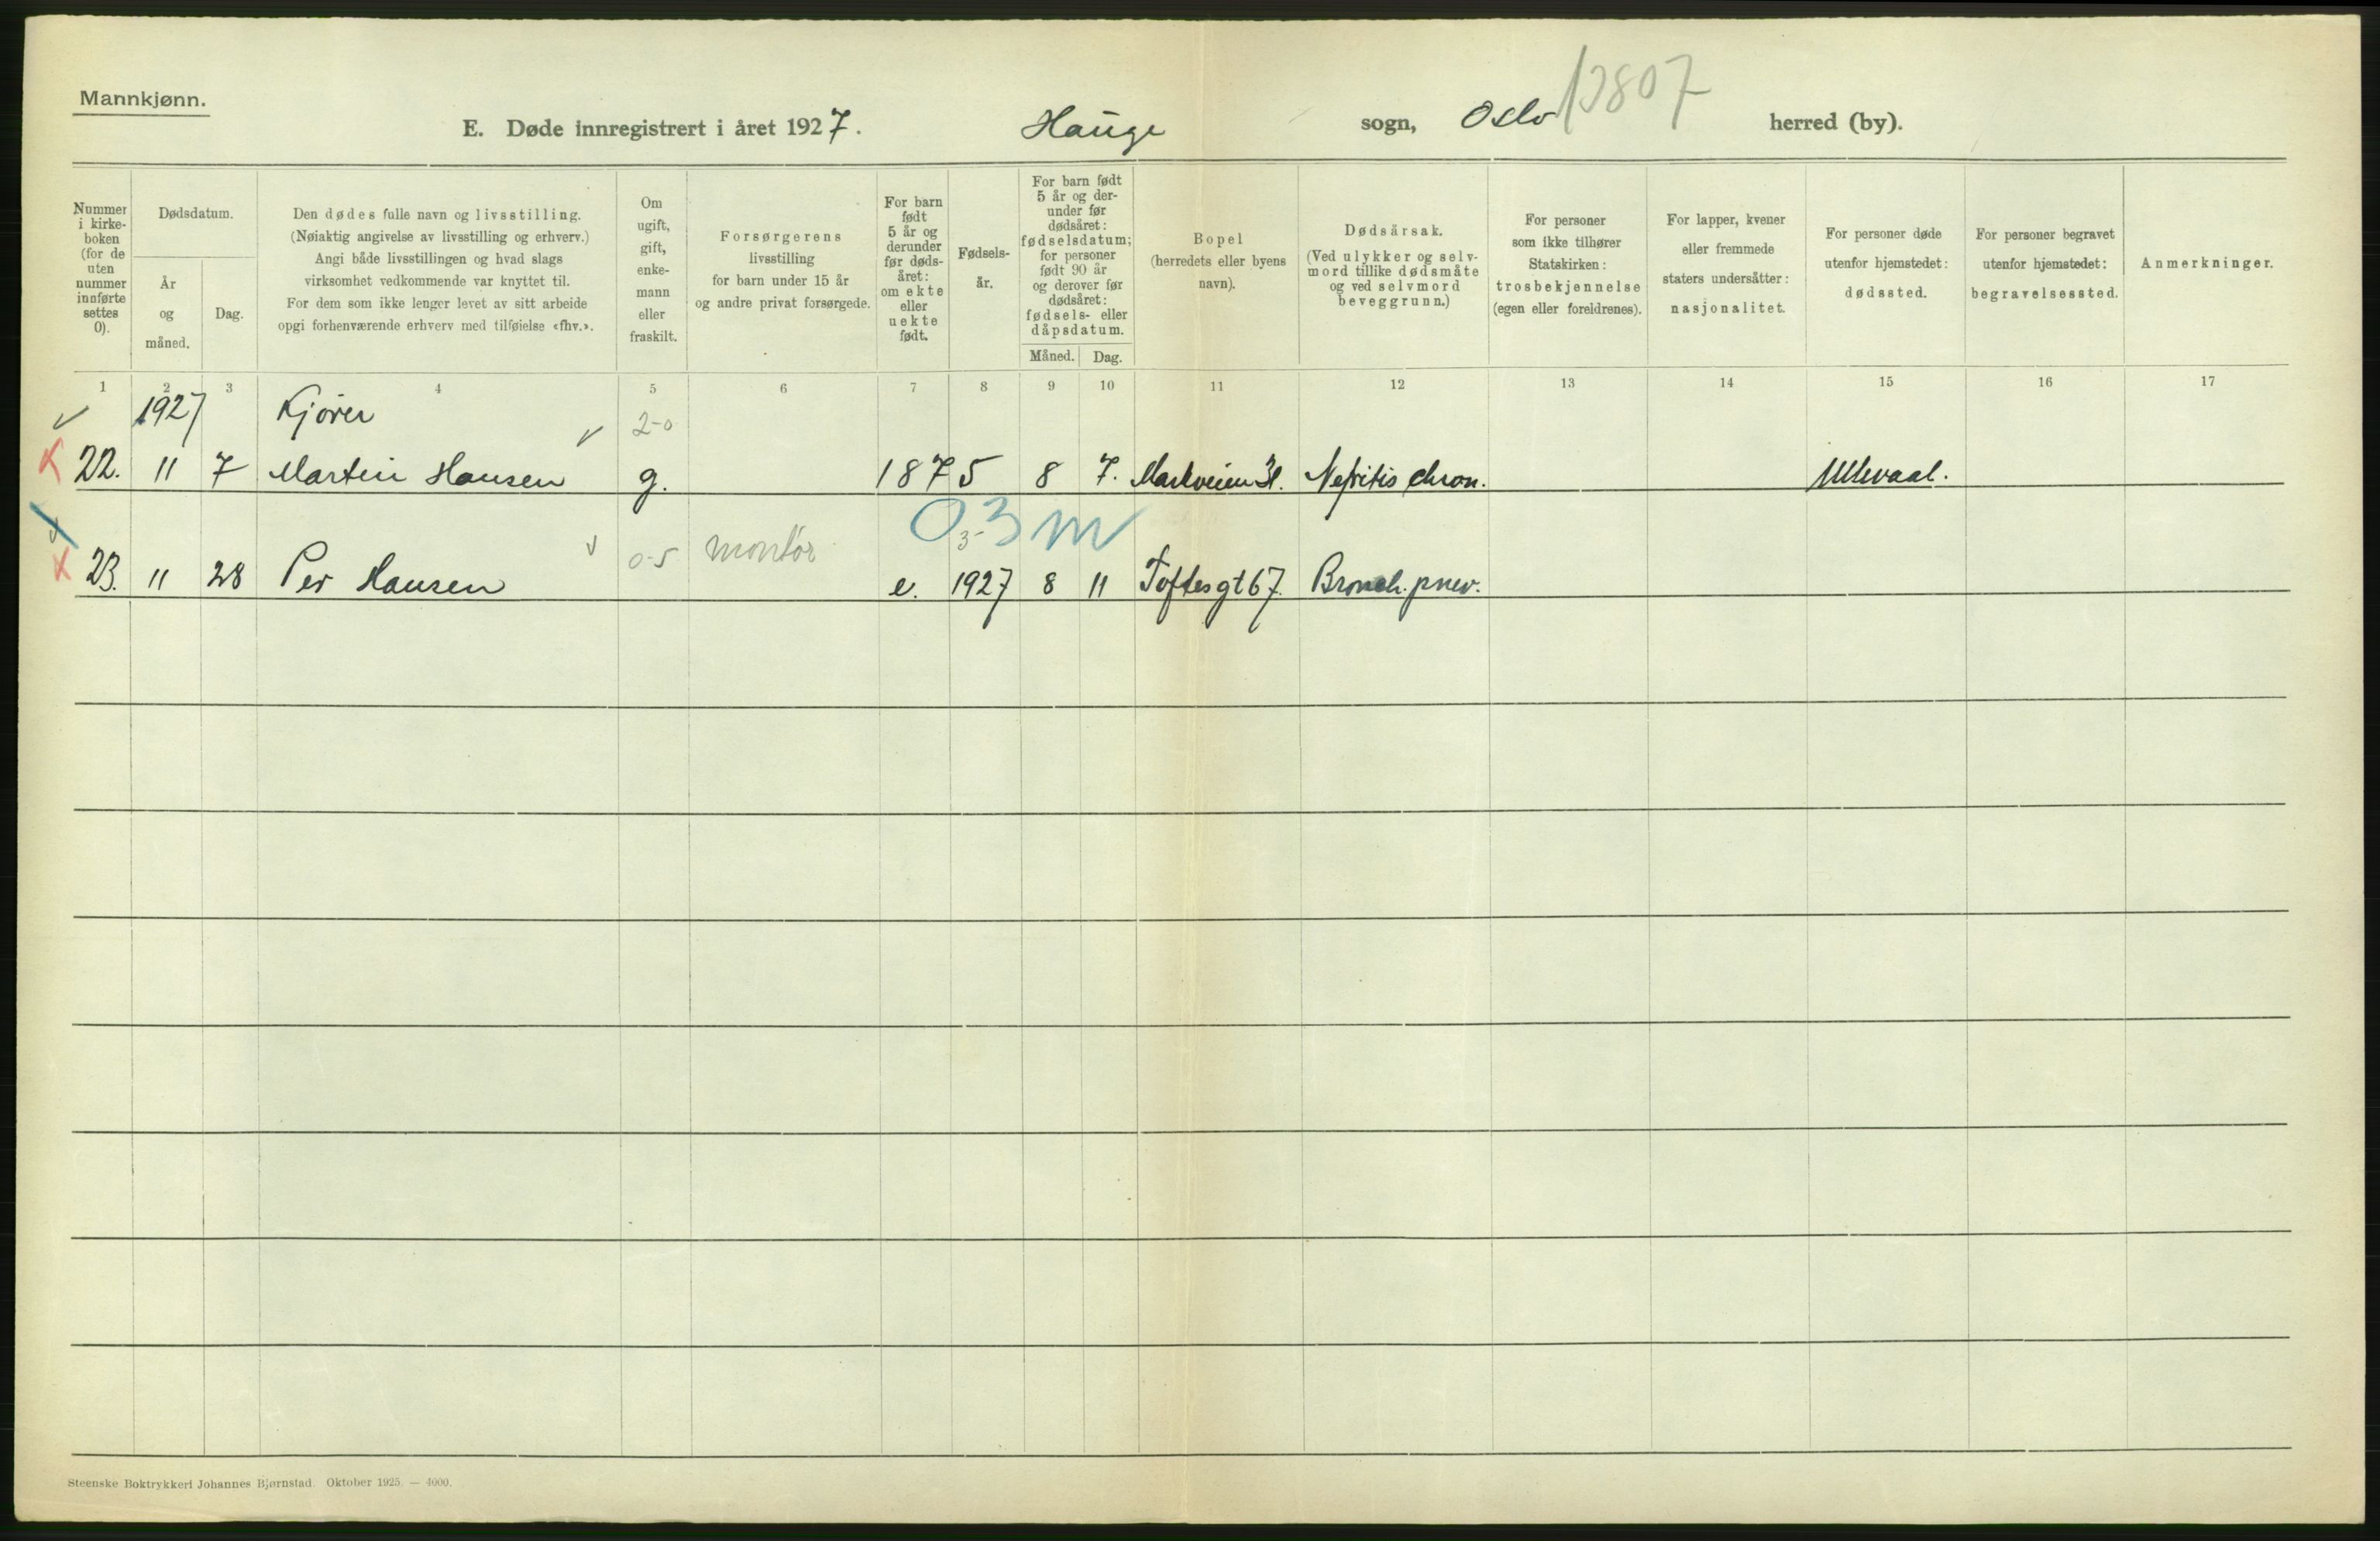 Mannkjønn.
E. Døde innregistrert i året 1927. Hauge sogn, Oslo herred (by).
13807
Nummer i kirke-boken (for de uten nummer innførte settes 0).
Dødsdatum.
År og måned.
Dag.
Den dødes fulle navn og livsstilling.
(Nøiaktig angivelse av livsstilling og erhverv.)
Angi både livsstillingen og hvad slags
virksomhet vedkommende var knyttet til.
For dem som ikke lenger levet av sitt arbeide
opgi forhenværende erhverv med tilføielse «fhv.».
Om ugift, gift, enke-mann eller fraskilt.
Forsørgerens
livsstilling
for barn under 15 år
og andre privat forsørgede.
For barn født 5 år og derunder før døds-året: om ekte eller uekte født.
Fødsels-år.
For barn født 5 år og der-under før dødsåret: fødselsdatum; for personer født 90 år og derover før dødsåret: fødsels- eller dåpsdatum.
Måned. Dag.
Bopel
(herredets eller byens
navn).
Dødsårsak.
(Ved ulykker og selv-
mord tillike dødsmåte
og ved selvmord
beveggrunn.)
For personer
som ikke tilhører
Statskirken:
trosbekjennelse
(egen eller foreldrenes).
For lapper, kvener
eller fremmede
staters undersåtter:
nasjonalitet.
For personer døde
utenfor hjemstedet:
dødssted.
For personer begravet
utenfor hjemstedet:
begravelsessted.
Anmerkninger.
1 2 3 4 5 6 7 8 9 10 11 12 13 14 15 16 17
1927 Kjører 2-0
22. 11 7 Martin Hansen g. 1875 8 7. Markveien 31. Nefritis chron. Ullevaal.
0-3 m
0-5 montør 3-
23. 11 28 Per Hansen e. 1927 8 11 Toftesgt 67. Bronch. pnev.
Steenske Boktrykkeri Johannes Bjørnstad. Oktober 1925. — 4000.